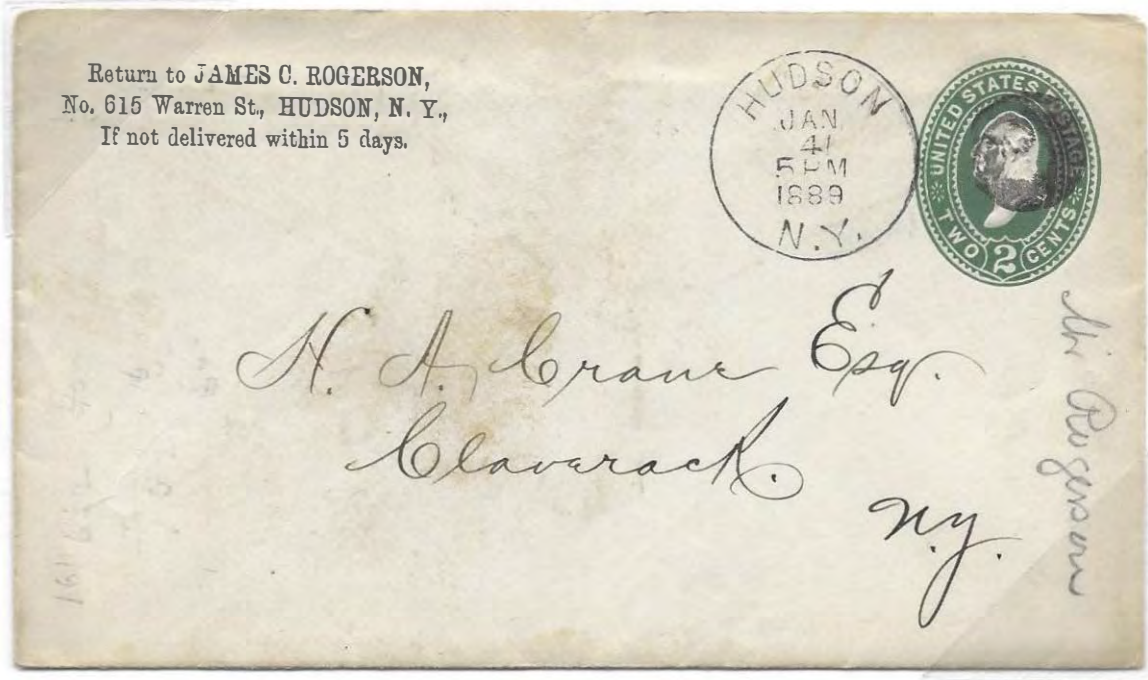 Return to JAMES C. ROGERSON,
No. 615 Warren St., HUDSON, N. Y.,
If not delivered within 5 days.
HUDSON
JAN
4
5 PM
1889
N.Y.
UNITED STATES POSTAGE
TWO 2 CENTS
H. A. Crane Esq.
Claverack.
N.Y.
Mr Rogerson